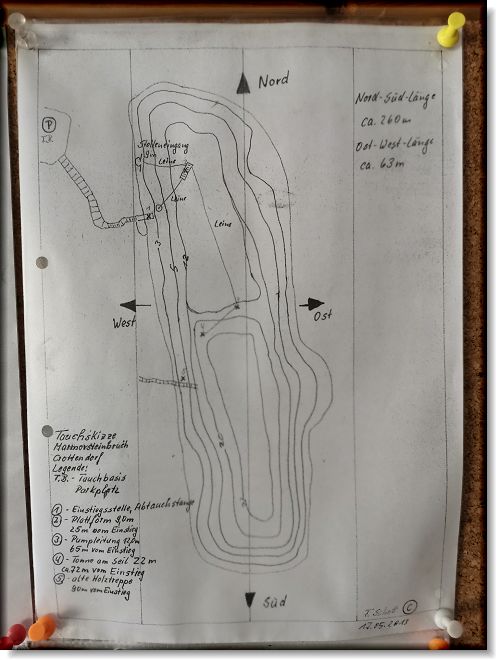 Nord
Nord-Süd-Länge
ca. 260m
Ost-West-Länge
ca. 63m
P
T.B.
Stolleneingang
9m
Leine
Leine
Leine
1
3
5
12
West
Ost
20
Tauchskizze
Marmorsteinbruch
Crottendorf
Legende:
T.B. - Tauchbasis
Parkplatz
1 - Einstiegsstelle, Abtauchstange
2 - Plattform 9,0m
25m vom Einstieg
3 - Pumpleitung 12,0m
65m vom Einstieg
4 - Tonne am Seil 22m
ca. 72m vom Einstieg
5 - alte Holztreppe
90m vom Einstieg
Süd
C